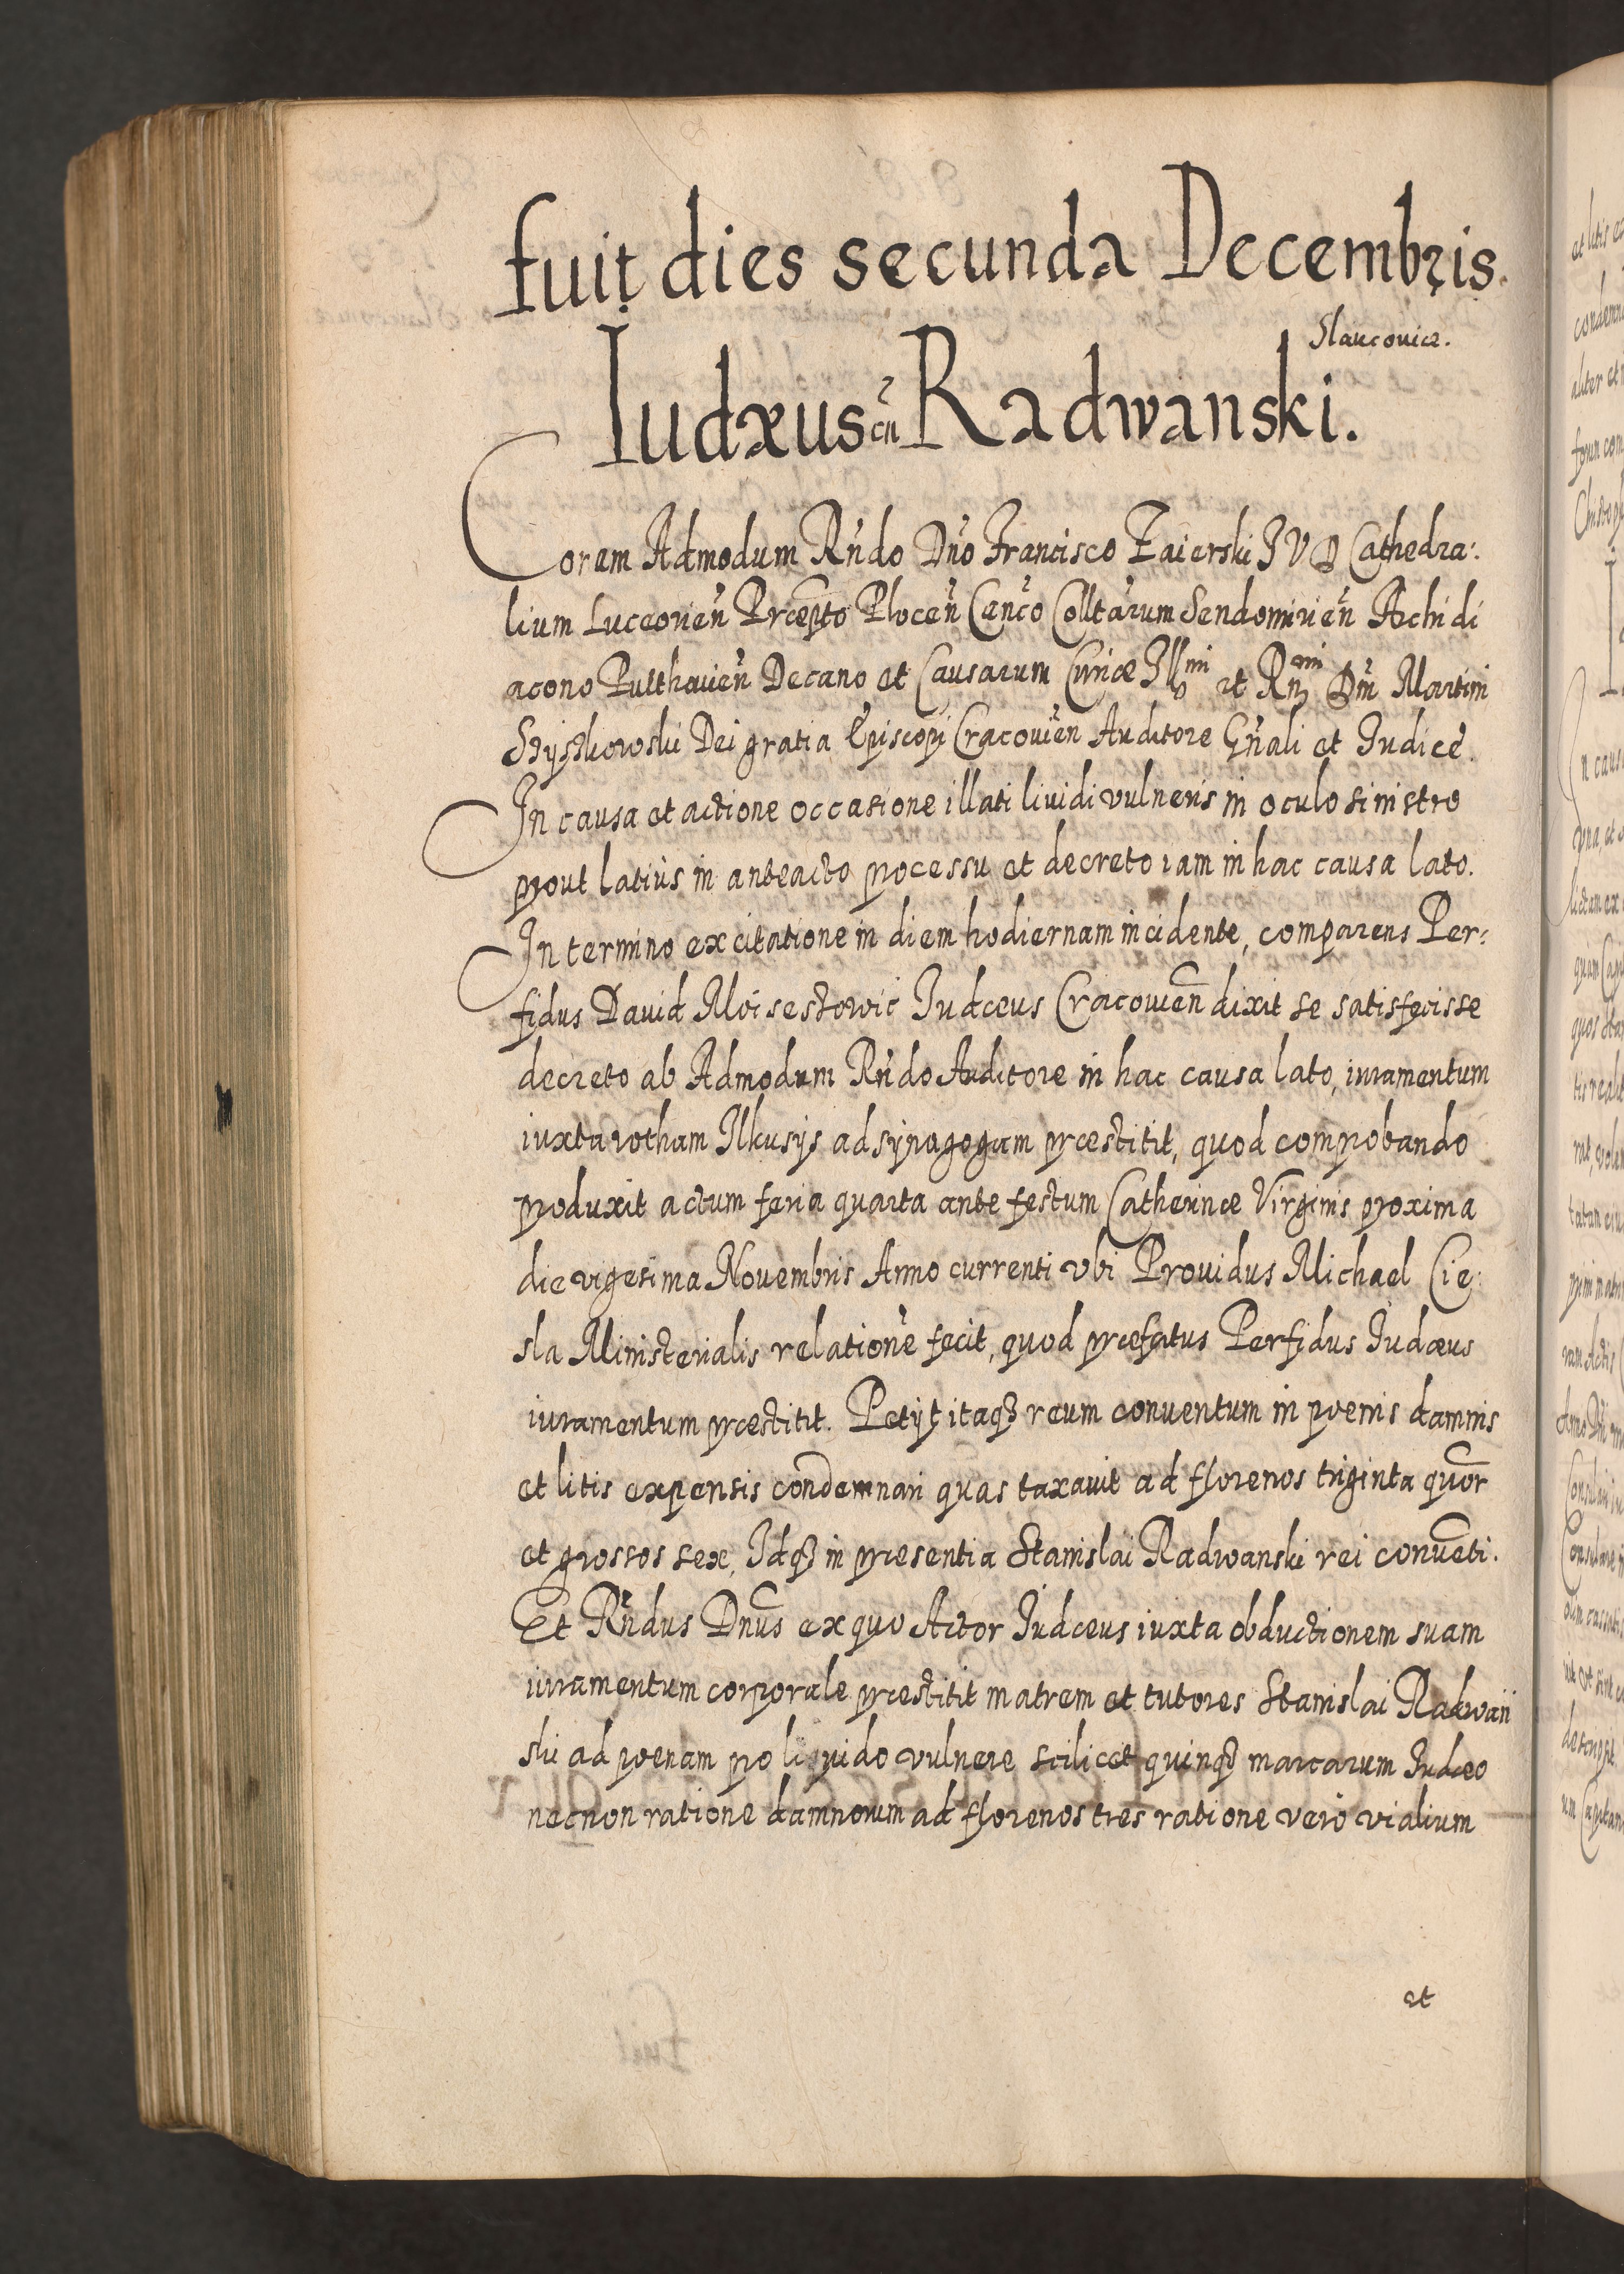 fuit dies secunda Decembris.
Slaucouice.
Iudæus cũ Radwanski.
Coram Admodum Rñdo Dño Francisco Zaierski I V D Cathedra:
lium Luceorieñ Præpto Ploceñ Canco Colltarum Sendomirieñ Archidi
acono Pulthouieñ Decano et Causarum Curiæ Illmi et Rmi Dñi Martini
Szyszkowski Dei gratia Episcopi Cracouieñ Auditore Gñali et Iudice.
In causa et actione occasione illati liuidi vulneris in oculo sinistro
prout latius in anteacto processu et decreto iam in hac causa lato.
In termino ex citatione in diem hodiernam incidente, comparens Per:
fidus Dauid Moisestowic Iudæus Cracouieñ dixit se satisfecisse
decreto ab Admodum Rñdo Auditore in hac causa lato, iuramentum
iuxta rotham Ilkusijs ad synagogam præstitit, quod comprobando
produxit actum feria quarta ante festum Catherinæ Virginis proxima
die vigesima Nouembris Anno currenti vbi Prouidus Michael Cie:
sla Ministerialis relatione fecit, quod præfatus Perfidus Iudæus
iuramentum præstitit. Petijt itaqʒ reum conuentum in poenis damnis
et litis expensis condemnari quas taxauit ad florenos triginta quõr
et grossos sex, Idqʒ in præsentia Stanislai Radwanski rei conuẽti.
Et Rñdus Dñus ex quo Actor Iudæus iuxta obductionem suam
iuramentum corporale præstitit matrem et tutores Stanislai Radwañ
ski ad poenam pro liquido vulnere scilicet quinqʒ marcarum Iudæo
necnon ratione damnorum ad florenos tres ratione vero vialium
et